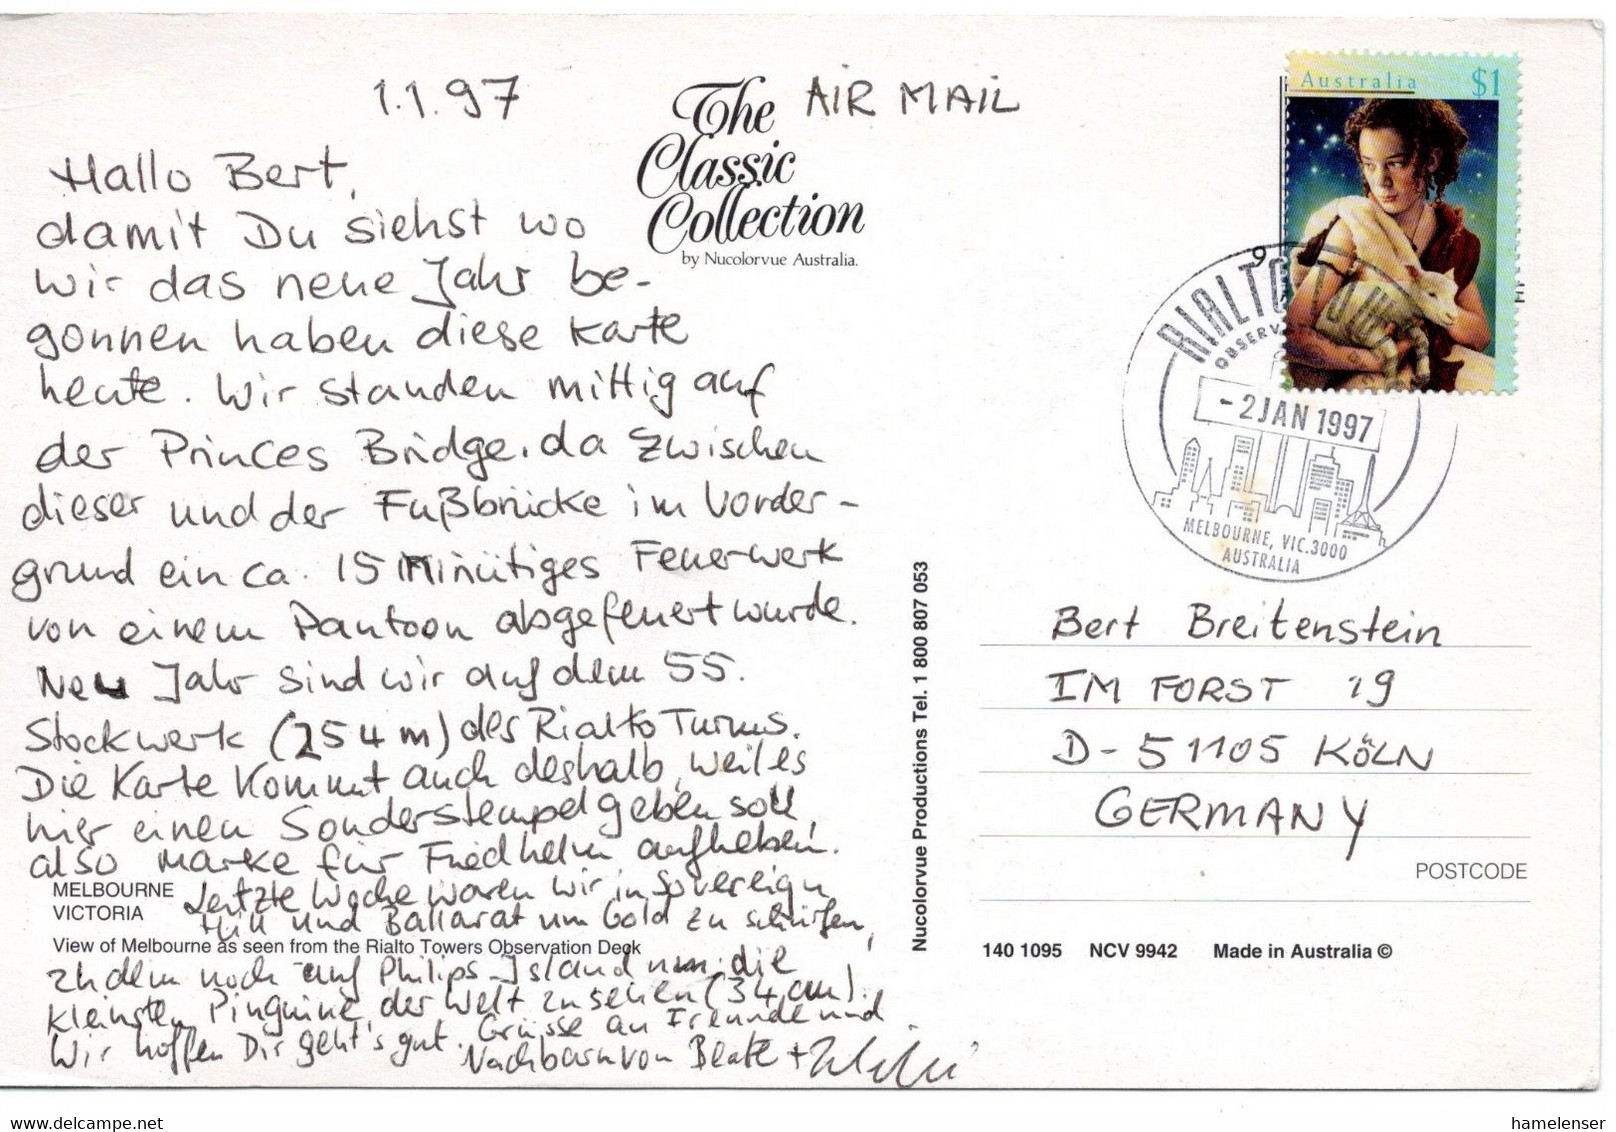 1.1.97
Hallo Bert,
damit Du siehst wo
wir das neue Jahr be-
gonnen haben diese Karte
heute. Wir standen mittig auf
der Princes Bridge, da zwischen
dieser und der Fußbrücke im Vorder-
grund ein ca. 15 Minütiges Feuerwerk
von einem Pantoon abgefeuert wurde.
Neu Jahr sind wir auf dem 55.
Stockwerk (254 m) des Rialto Turms.
Die Karte kommt auch deshalb, weil es
hier einen Sonderstempel geben soll
also Marke für Friedhelm aufheben!
Letzte Woche waren wir in Sovereign
Hill und Ballarat um Gold zu schürfen,
zudem noch auf Philips-Island um die
kleinsten Pinguine der Welt zu sehen (34 cm).
Wir hoffen Dir geht's gut. Grüsse an Freunde und
Nachbarn von Beate +
MELBOURNE
VICTORIA
View of Melbourne as seen from the Rialto Towers Observation Deck
The
Classic
Collection
by Nucolorvue Australia.
AIR MAIL
Nucolorvue Productions Tel. 1 800 807 053
Australia $1
9
RIALTO
- 2 JAN 1997
MELBOURNE, VIC. 3000
AUSTRALIA
Bert Breitenstein
IM FORST 19
D-51105 KÖLN
GERMANY
POSTCODE
140 1095 NCV 9942 Made in Australia ©
© www.delcampe.net
hamelenser